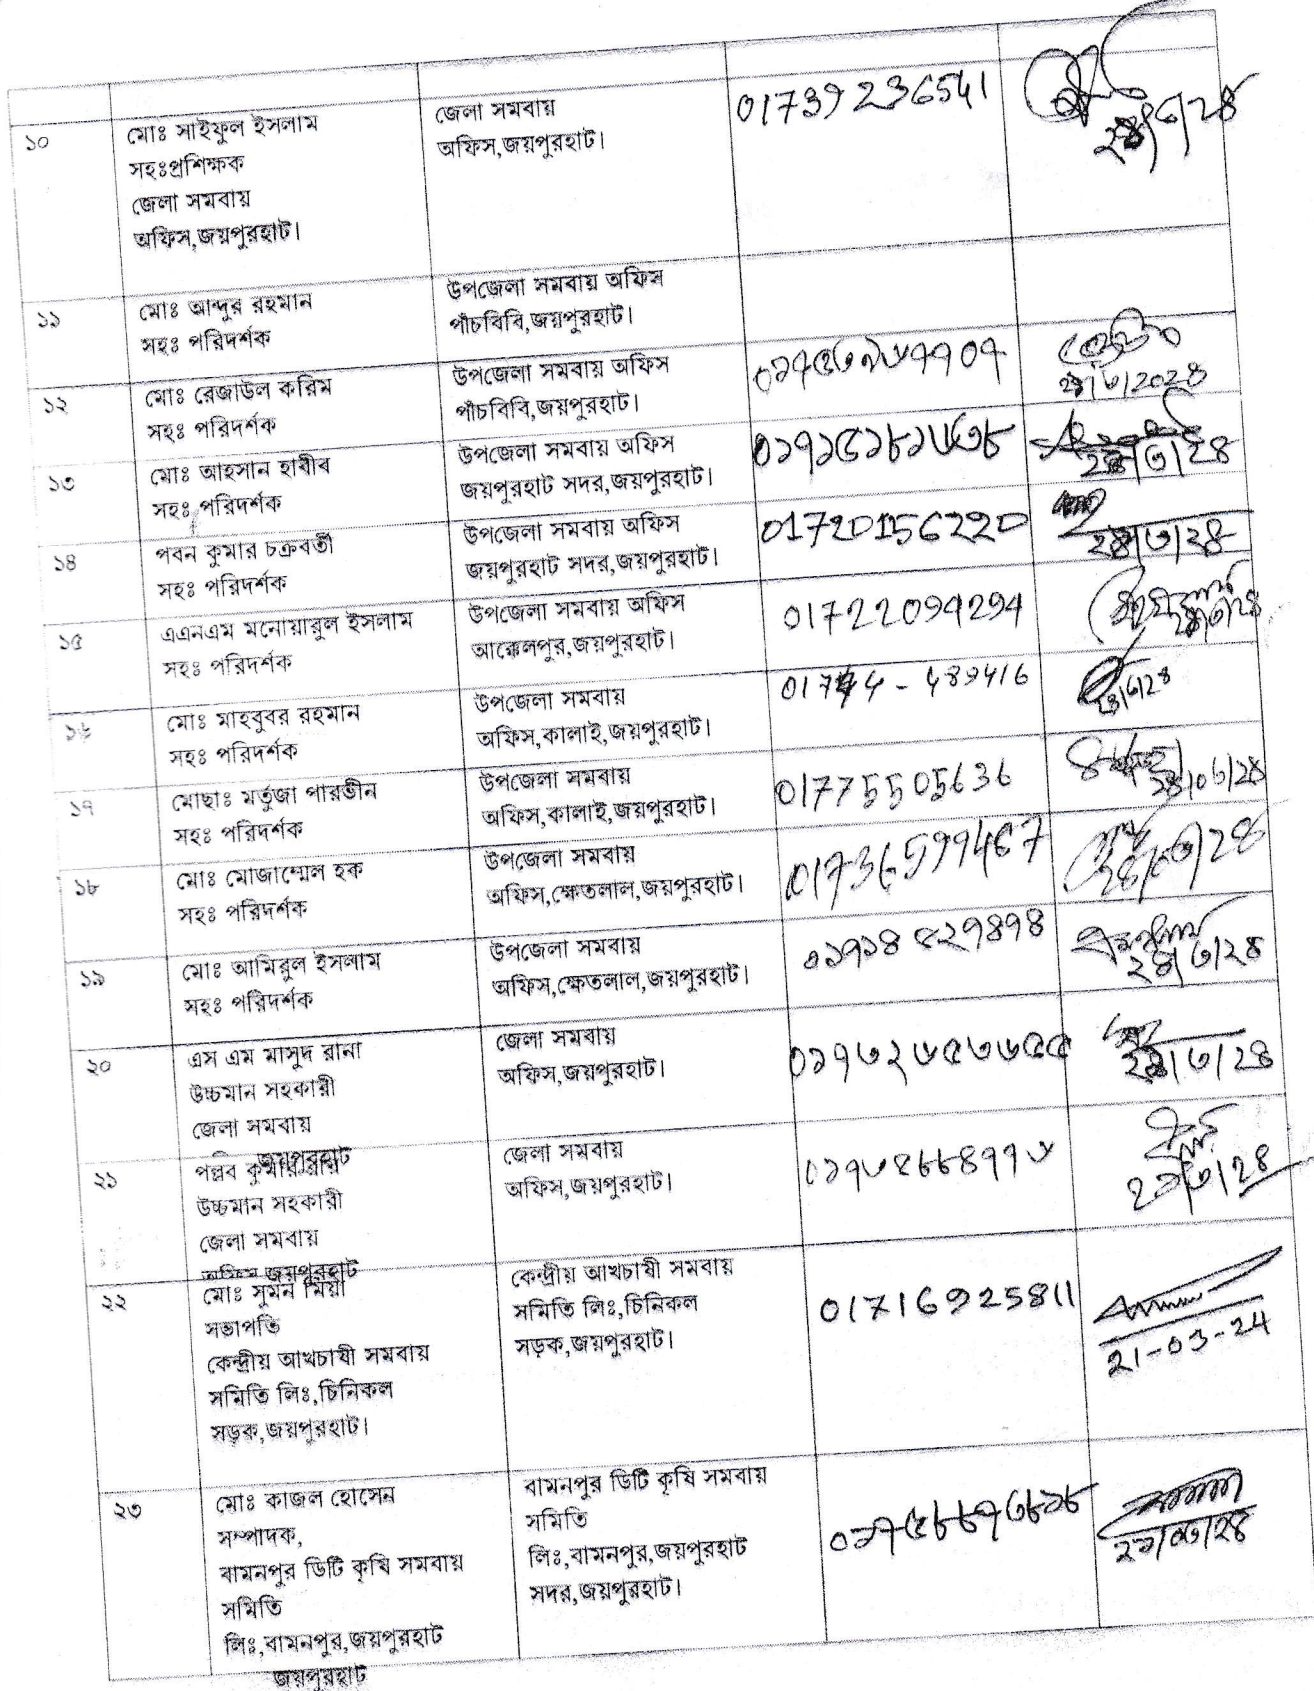 ১০
মোঃ সাইফুল ইসলাম
সহঃপ্রশিক্ষক
জেলা সমবায়
অফিস,জয়পুরহাট।
জেলা সমবায়
অফিস,জয়পুরহাট।
01739236541
২১/৩/২৪
১১
মোঃ আব্দুর রহমান
সহঃ পরিদর্শক
উপজেলা সমবায় অফিস
পাঁচবিবি,জয়পুরহাট।
১২
মোঃ রেজাউল করিম
সহঃ পরিদর্শক
উপজেলা সমবায় অফিস
পাঁচবিবি,জয়পুরহাট।
১৩
মোঃ আহসান হাবীব
সহঃ পরিদর্শক
উপজেলা সমবায় অফিস
জয়পুরহাট সদর,জয়পুরহাট।
২১/৩/২৪
১৪
পবন কুমার চক্রবর্তী
সহঃ পরিদর্শক
উপজেলা সমবায় অফিস
জয়পুরহাট সদর,জয়পুরহাট।
01720156220
২১/৩/২৪
১৫
এএনএম মনোয়ারুল ইসলাম
সহঃ পরিদর্শক
উপজেলা সমবায় অফিস
আক্কেলপুর,জয়পুরহাট।
01722094294
১৬
মোঃ মাহবুবর রহমান
সহঃ পরিদর্শক
উপজেলা সমবায়
অফিস,কালাই,জয়পুরহাট।
১৭
মোছাঃ মর্তুজা পারভীন
সহঃ পরিদর্শক
উপজেলা সমবায়
অফিস,কালাই,জয়পুরহাট।
01775505636
১৮
মোঃ মোজাম্মেল হক
সহঃ পরিদর্শক
উপজেলা সমবায়
অফিস,ক্ষেতলাল,জয়পুরহাট।
১৯
মোঃ আমিরুল ইসলাম
সহঃ পরিদর্শক
উপজেলা সমবায়
অফিস,ক্ষেতলাল,জয়পুরহাট।
০১৭১৪৫২৭৪৭৪
২১/৩/২৪
২০
এস এম মাসুদ রানা
উচ্চমান সহকারী
জেলা সমবায়
জয়পুরহাট
জেলা সমবায়
অফিস,জয়পুরহাট।
০১৭৩২৬৫৩৬৫৫
২১/৩/২৪
২১
পল্লব কুমার রায়
উচ্চমান সহকারী
জেলা সমবায়
অফিস জয়পুরহাট
জেলা সমবায়
অফিস,জয়পুরহাট।
২১/৩/২৪
২২
মোঃ সুমন মিয়া
সভাপতি
কেন্দ্রীয় আখচাষী সমবায়
সমিতি লিঃ,চিনিকল
সড়ক,জয়পুরহাট।
কেন্দ্রীয় আখচাষী সমবায়
সমিতি লিঃ,চিনিকল
সড়ক,জয়পুরহাট।
01716925811
21-03-24
২৩
মোঃ কাজল হোসেন
সম্পাদক,
বামনপুর ডিটি কৃষি সমবায়
সমিতি
লিঃ,বামনপুর,জয়পুরহাট
জয়পুরহাট
বামনপুর ডিটি কৃষি সমবায়
সমিতি
লিঃ,বামনপুর,জয়পুরহাট
সদর,জয়পুরহাট।
২১/০৩/২৪